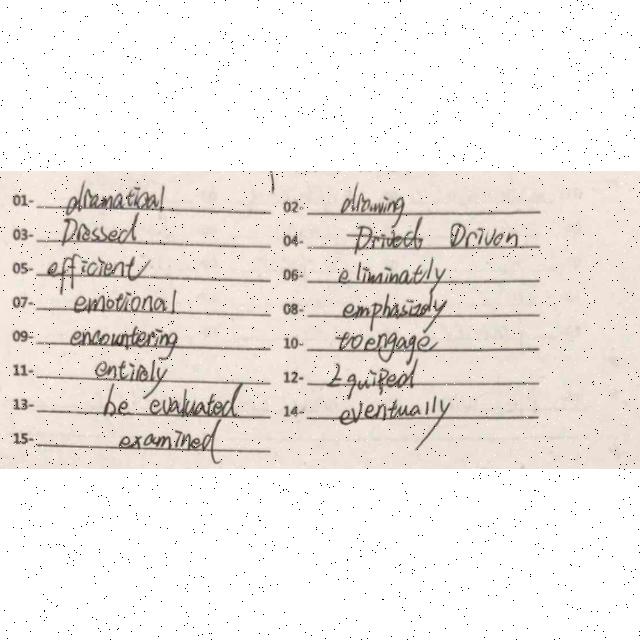 01- dramatical
02- drawing
03- Dressed
04- Drived Driven
05- efficient
06- eliminatly
07- emotional
08- emphasizely
09- encountering
10- to engage
11- entirely
12- Equiped
13- be evaluated
14- eventually
15- examined